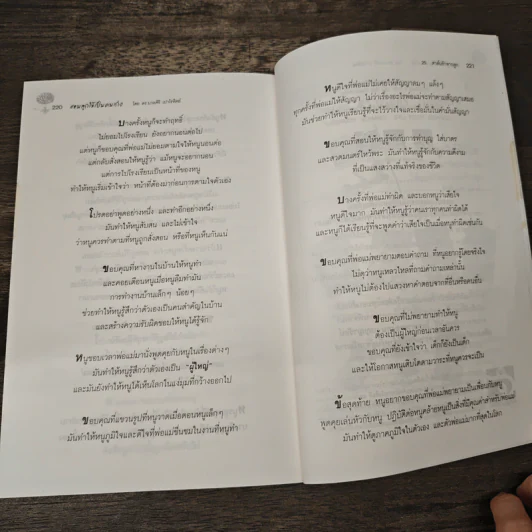 220 สอนลูกให้เป็นคนเก่ง โดย
บางครั้งหนูก็จะทำฤทธิ์
ไม่ยอมไปโรงเรียน ยังอยากนอนต่อไป
แต่หนูก็ขอบคุณที่พ่อแม่ไม่ยอมตามใจให้หนูนอนต่อ
แต่กลับสั่งสอนให้หนูรู้ว่า แม้หนูจะอยากนอน
แต่การไปโรงเรียนเป็นหน้าที่ของหนู
ทำให้หนูเริ่มเข้าใจว่า หน้าที่ต้องมาก่อนการตามใจตัวเอง
โปรดอย่าพูดอย่างหนึ่ง และทำอีกอย่างหนึ่ง
มันทำให้หนูสับสน และไม่เข้าใจ
ว่าหนูควรทำตามที่หนูถูกสั่งสอน หรือที่หนูเห็นกันแน่
ขอบคุณที่หางานในบ้านให้หนูทำ
และคอยเตือนหนูเมื่อหนูลืมทำมัน
การทำงานบ้านเล็กๆ น้อยๆ
ช่วยทำให้หนูรู้สึกว่าตัวเองเป็นคนสำคัญในบ้าน
และสร้างความรับผิดชอบให้หนูได้รู้จัก
หนูชอบเวลาพ่อแม่มานั่งพูดคุยกับหนูในเรื่องต่างๆ
มันทำให้หนูรู้สึกว่าตัวเองเป็น "ผู้ใหญ่"
และมันยังทำให้หนูได้เห็นโลกในแง่มุมที่กว้างออกไป
ขอบคุณที่แขวนรูปที่หนูวาดเมื่อตอนหนูเล็กๆ
มันทำให้หนูภูมิใจและดีใจที่พ่อแม่ชื่นชมในงานที่หนูทำ
221
หนูดีใจที่พ่อแม่ไม่เคยให้สัญญาลมๆ แล้งๆ
ทุกครั้งที่พ่อแม่ให้สัญญา ไม่ว่าเรื่องอะไรพ่อแม่จะทำตามสัญญาเสมอ
มันช่วยทำให้หนูเรียนรู้ที่จะไว้วางใจและเชื่อมั่นในคำมั่นสัญญา
ขอบคุณที่สอนให้หนูรู้จักกับการทำบุญ ใส่บาตร
และสวดมนตร์ไหว้พระ มันทำให้หนูรู้จักกับความดีงาม
ที่เป็นแสงสว่างที่แท้จริงของชีวิต
บางครั้งที่พ่อแม่ทำผิด และบอกหนูว่าเสียใจ
หนูดีใจมาก มันทำให้หนูรู้ว่าคนเราทุกคนทำผิดได้
และหนูก็ได้เรียนรู้ที่จะพูดคำว่าเสียใจเป็นเมื่อหนูทำผิดเช่นกัน
ขอบคุณที่พ่อแม่พยายามตอบคำถาม ที่หนูอยากรู้โดยจริงใจ
ไม่ดุว่าหนูเหลวไหลที่ถามคำถามเหล่านั้น
ทำให้หนูไม่ต้องไปแสวงหาคำตอบจากที่อื่นหรือคนอื่น
ขอบคุณที่ไม่พยายามทำให้หนู
ต้องเป็นผู้ใหญ่ก่อนเวลาอันควร
ขอบคุณที่ยังเข้าใจว่า เด็กก็ยังเป็นเด็ก
และให้โอกาสหนูเติบโตตามวาระที่หนูควรจะเป็น
ข้อสุดท้าย หนูอยากขอบคุณที่พ่อแม่พยายามเป็นเพื่อนกับหนู
พูดคุยเล่นหัวกับหนู ปฏิบัติต่อหนูคล้ายหนูเป็นสิ่งที่มีคุณค่าสำหรับพ่อแม่
มันทำให้หนูภาคภูมิใจในตัวเอง และตัวพ่อแม่มากที่สุดในโลก